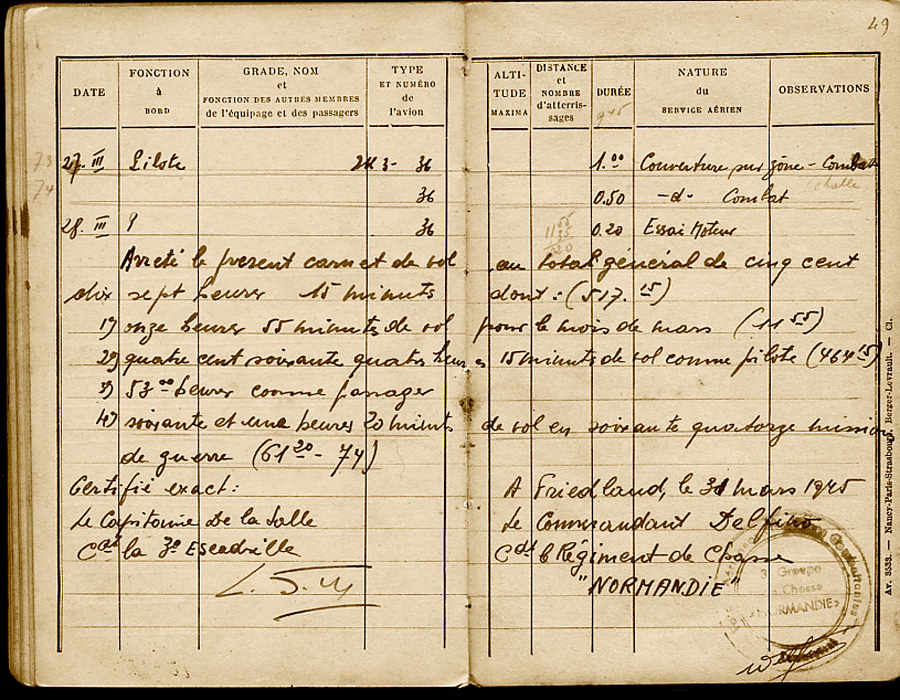 49
DATE
FONCTION
à
BORD
GRADE, NOM
et
FONCTION DES AUTRES MEMBRES
de l'équipage et des passagers
TYPE
ET NUMÉRO
de
l'avion
ALTI-
TUDE
MAXIMA
DISTANCE
et
NOMBRE
d'atterris-
sages
DURÉE
NATURE
du
SERVICE AÉRIEN
OBSERVATIONS
945
73 27. III Pilote 3- 36 1.00 Couverture sur zône - Combat
74 36 0.50 -d- Combat
28. III 36 0.20 Essai Moteur
Arreté le present carnet de vol au total général de cinq cent
dix sept heures 15 minuts dont : (517.15)
1) onze heures 55 minuts de vol pour le mois de mars (11 55)
2) quatre cent soixante quatre heures 15 minuts de vol comme pilote (464 15)
3) 53 00 heures comme passager
4) soixante et une heures 20 minuts de vol en soixante quatorze missions
de guerre (61 20 - 74)
Certifié exact: A Friedland, le 31 mars 1945
Le Capitaine De la Salle Le Commandant Delfino
Cdt la 3e Escadrille Cdt le Régiment de Chasse
"NORMANDIE"
3 Groupe
de Chasse
«NORMANDIE»
Combattantes
Av. 3533. — Nancy-Paris-Strasbourg, Berger-Levrault. — Cl.